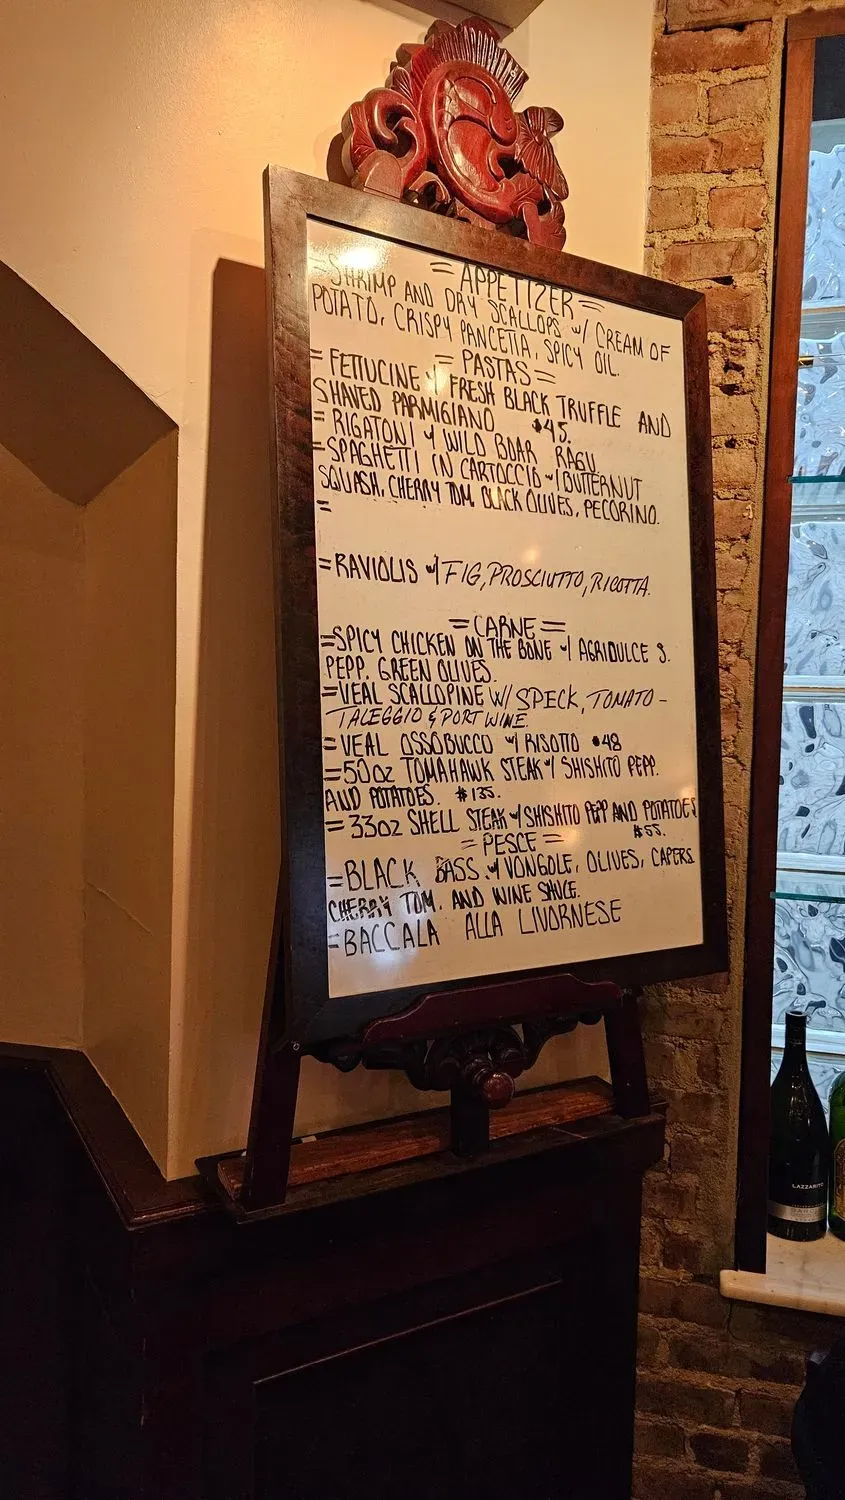 = APPETIZER =
= SHRIMP AND DRY SCALLOPS w/ CREAM OF
POTATO, CRISPY PANCETTA, SPICY OIL.
= PASTAS =
= FETTUCINE w/ FRESH BLACK TRUFFLE AND
SHAVED PARMIGIANO $45.
= RIGATONI w/ WILD BOAR RAGU
= SPAGHETTI IN CARTOCCIO w/ BUTTERNUT
SQUASH, CHERRY TOM, BLACK OLIVES, PECORINO.
=
= RAVIOLIS w/ FIG, PROSCIUTTO, RICOTTA.
= CARNE =
= SPICY CHICKEN ON THE BONE w/ AGRIDULCE S.
PEPP. GREEN OLIVES.
= VEAL SCALLOPINE W/ SPECK, TOMATO -
TALEGGIO & PORT WINE.
= VEAL OSSOBUCCO w/ RISOTTO $48
= 50oz TOMAHAWK STEAK w/ SHISHITO PEPP.
AND POTATOES. $135.
= 33oz SHELL STEAK w/ SHISHITO PEPP AND POTATOES
$55.
= PESCE =
= BLACK BASS w/ VONGOLE, OLIVES, CAPERS
CHERRY TOM. AND WINE SAUCE.
= BACCALA ALLA LIVORNESE
LAZZARITO